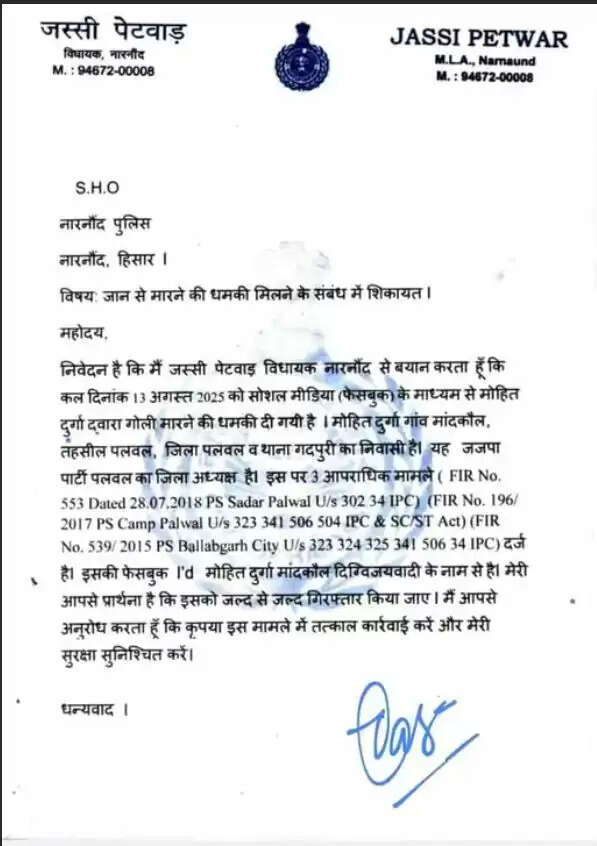 जस्सी पेटवाड़
विधायक, नारनौंद
M. : 94672-00008
JASSI PETWAR
M.L.A., Narnaund
M. : 94672-00008
S.H.O
नारनौंद पुलिस
नारनौंद, हिसार ।
विषय: जान से मारने की धमकी मिलने के संबंध में शिकायत ।
महोदय,
निवेदन है कि मैं जस्सी पेटवाड़ विधायक नारनौंद से बयान करता हूँ कि
कल दिनांक 13 अगस्त 2025 को सोशल मीडिया (फेसबुक) के माध्यम से मोहित
दुर्गा द्वारा गोली मारने की धमकी दी गयी है । मोहित दुर्गा गांव मांदकौल,
तहसील पलवल, जिला पलवल व थाना गदपुरी का निवासी है। यह जजपा
पार्टी पलवल का जिला अध्यक्ष है। इस पर 3 आपराधिक मामले ( FIR No.
553 Dated 28.07.2018 PS Sadar Palwal U/s 302 34 IPC) (FIR No. 196/
2017 PS Camp Palwal U/s 323 341 506 504 IPC & SC/ST Act) (FIR
No. 539/ 2015 PS Ballabgarh City U/s 323 324 325 341 506 34 IPC) दर्ज
है। इसकी फेसबुक I'd मोहित दुर्गा मांदकौल दिग्विजयवादी के नाम से है। मेरी
आपसे प्रार्थना है कि इसको जल्द से जल्द गिरफ्तार किया जाए । मैं आपसे
अनुरोध करता हूँ कि कृपया इस मामले में तत्काल कार्रवाई करें और मेरी
सुरक्षा सुनिश्चित करें।
धन्यवाद ।